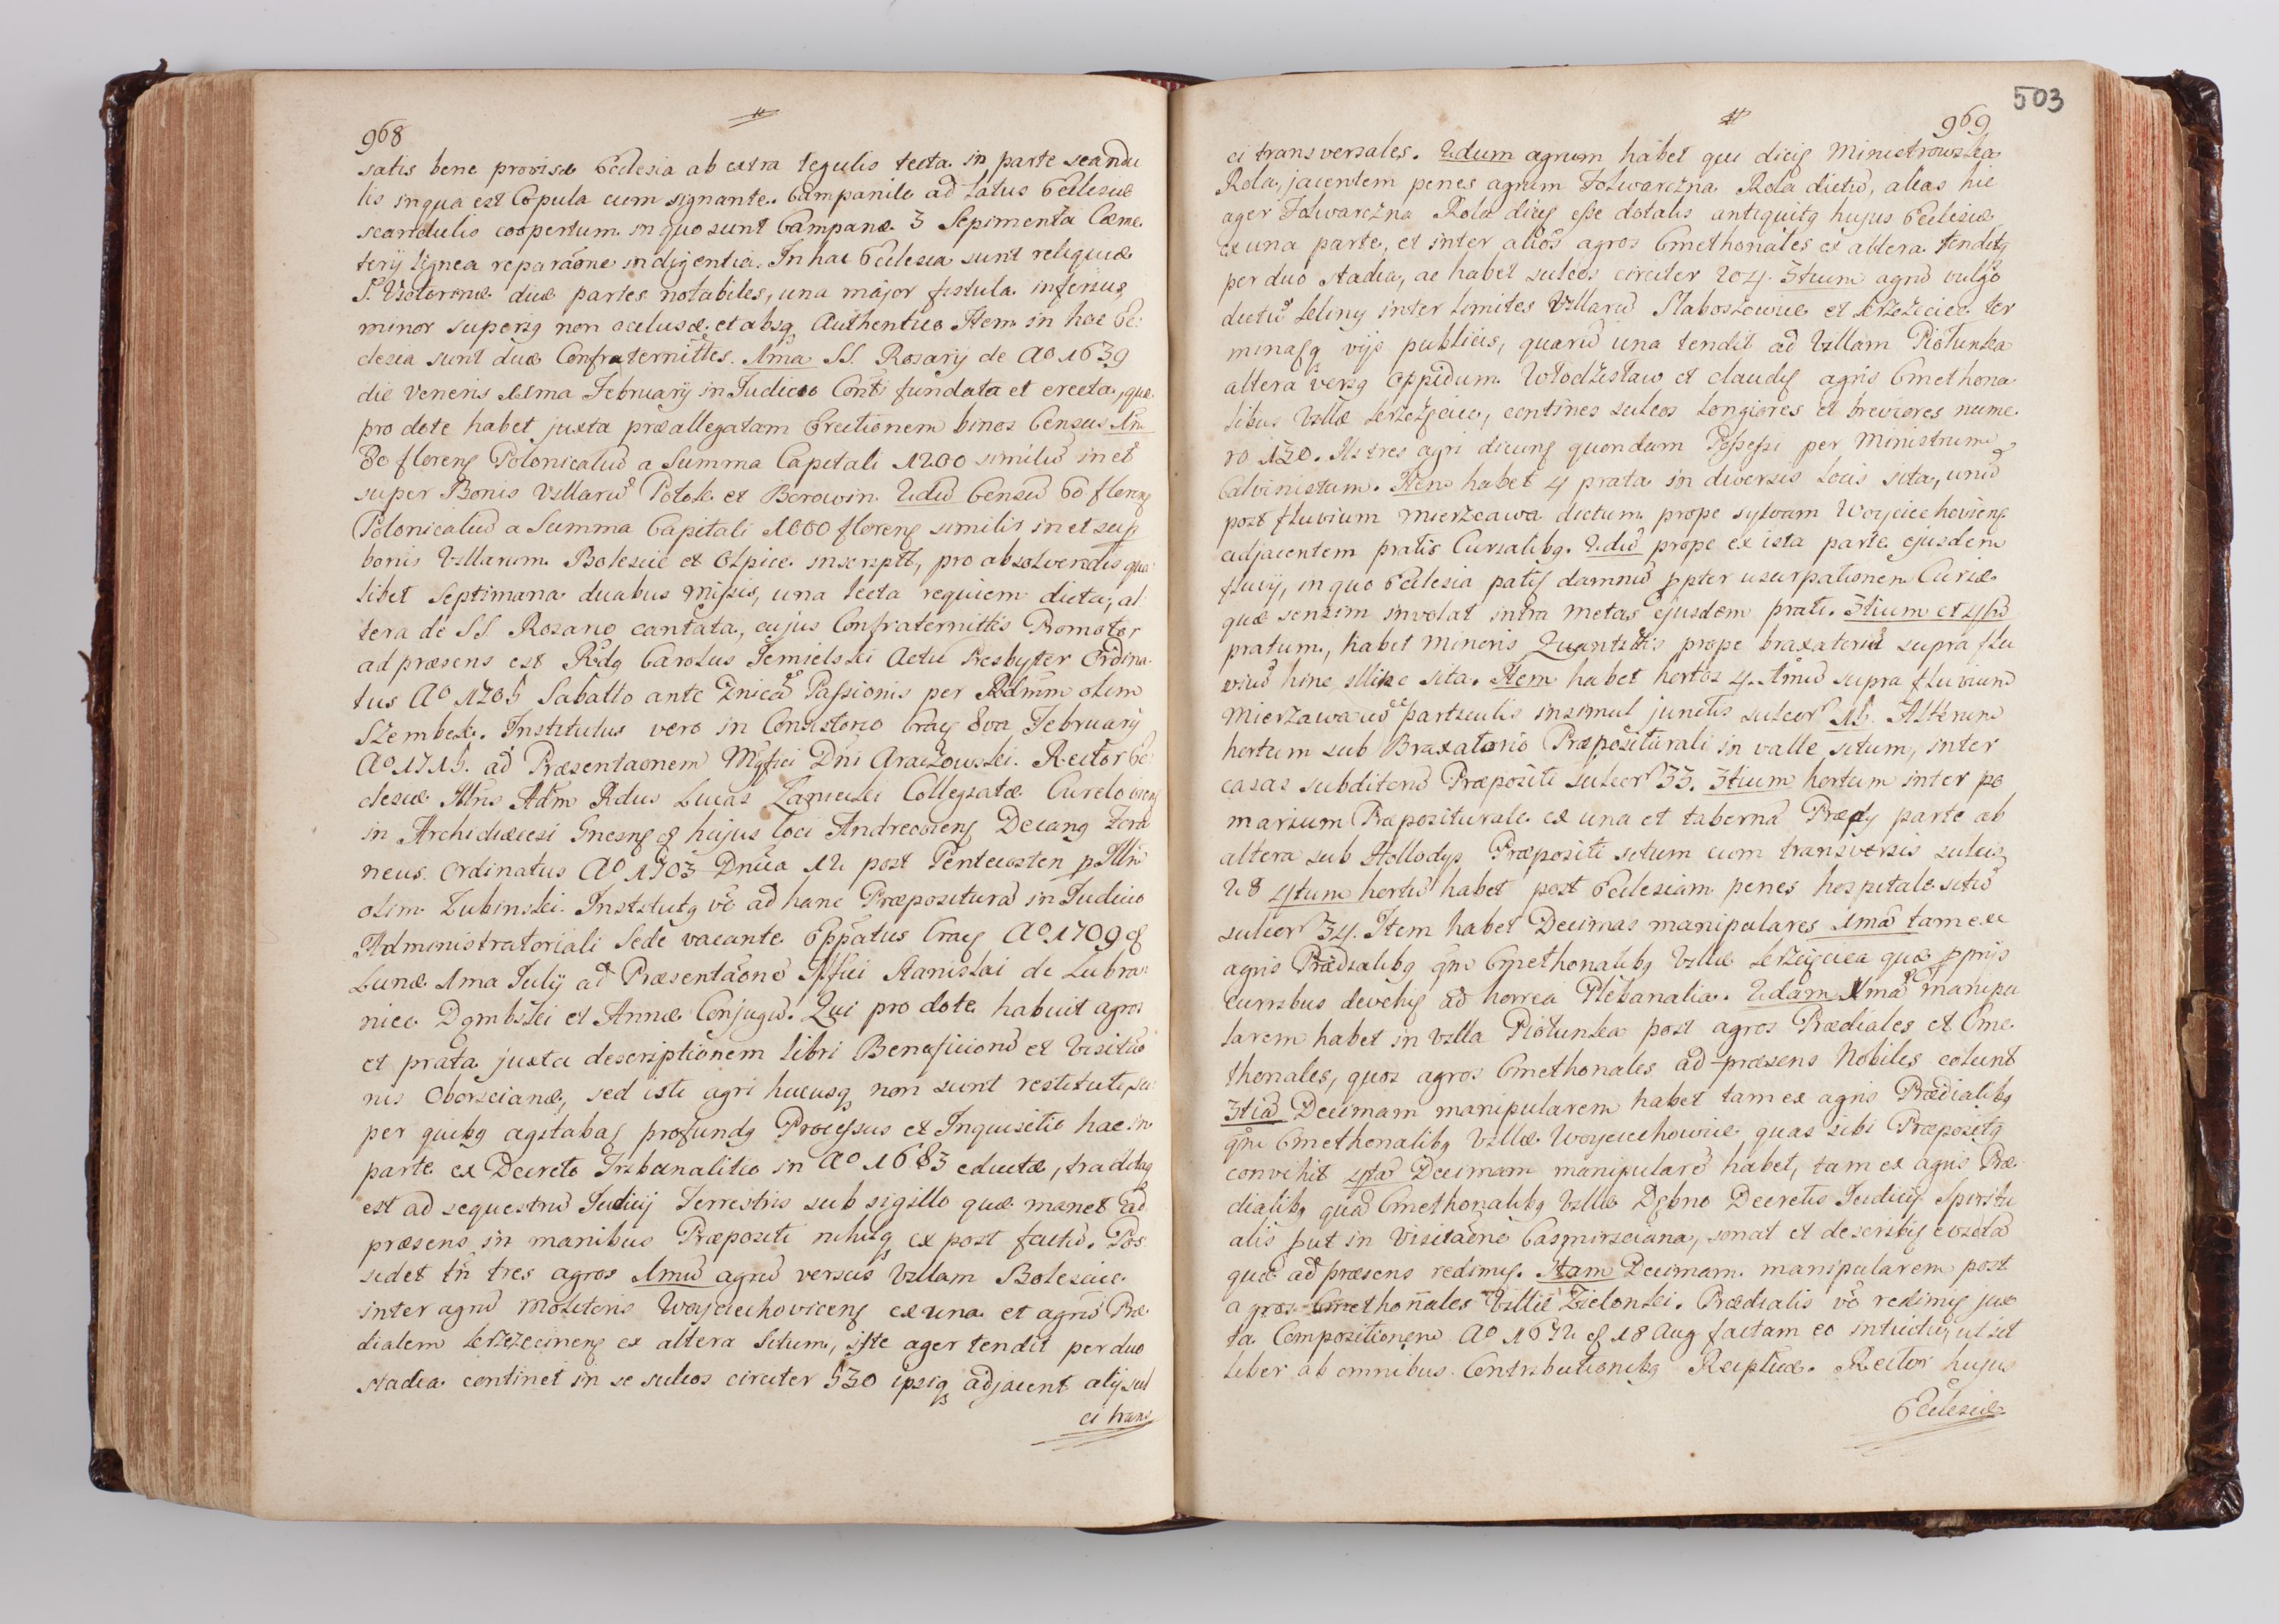 968
satis bene provisa Ecclesia ab extra tegulis tecta in parte scandu
lis in qua est Copula cum signante. Campanile ad latus Ecclesiæ
scandulis coopertum in quo sunt Campanæ 3 Sepimenta Cæme
terij lignea reparãone indigentia. In hac Ecclesia sunt reliquiæ
S. Victorinæ duæ partes notabiles, una major fistula inferius
minor superiq non oclusæ et absq Authentico Item in hac Ec:
clesia sunt duæ Confraternittes. 1ma SS. Rosarij de Ao 1639
die Veneris 11ma February in Judicio fundata et erecta, quæ
pro dote habet juxta præallegatam Erectionem binos Census
80 floreng Polonicaliũ a Summa Capitali 1200 similiũ in et
super Bonis Villarũ Potok et Borowin. 2dũ Censũ 60 floreng
Polonicaliũ a Summa Capitali 1000 floreng similis in et sup
bonis Villarum Bolescie et Olpice inscriptt, pro absolvendis qua
libet Septimana duabus Missis, una lecta requiem dicta, al
tera de SS. Rosario cantata, cujus Confraternittis Promotor
ad præsens est Rdg Carolus Jemielski Actu Presbyter Ordina
tus Ao 1705 Sabatto ante Dnicã Passionis per Rdmm olim
Szembek. Institutus vero in Consistorio Crac 8va February
Ao 1715. ad Præsentaonem Mgfici Dni Araczowski. Rector Ec
clesiæ Illris Adm Rdus Lucas Collegiatæ Curelovieng
in Archidiæcesi Gnesng & hujus loci Andreovieng Decang Fora
neus. Ordinatus Ao 1703 Dnica 12 post Pentecosten p Illrũ
olim Lubinski. Institutg vo ad hanc Præposituram in Judicio
Administratoriali Sede vacante Eppatus Crac Ao 1709 &
Lunæ 1ma July ad Præsentãone Mfici Stanislai de Lubra
niec Dombski et Annæ Conjugũ. Qui pro dote habuit agros
et prata juxta descriptionem libri Beneficiorũ et Visitão
nis Oborscianæ, sed isti agri hucusq non sunt restituti, su
per quibg agitabaf profundg Processus et Inquisitio hac in
parte ex Decreto Tribunalitio in Ao 1683 eductæ, tradita
est ad sequestrũ Judicij Terrestris sub sigillo quæ manet ad
præsens in manibus Præpositi nihilq ex post factũ. Pos
sidet tñ tres agros 1mũ agrũ versus Villam Bolescie
inter agrũ Molitoris Woyciechoviceng ex una et agrũ Præ
dialem Krzezecineng ex altera Situm, iste ager tendit per duo
stadia continet in se sulcos circiter 530 ipsiq adjacent alij sul
ci trans
503
969
ci transversales. 2dum agrum habet qui dicif Ministrowska
Rola, jacentem penes agrum Folwarczna Rola dictũ, alias hic
ager Folwarczna Rola dicif esse dotalis antiquitg hujus Ecclesiæ
ex una parte, et inter alios agros Cmethonales ex altera tenditg
per duo stadia, ac habet sulcos circiter 204. 3tium agrũ vulgo
dictũ Leliny inter limites Villarũ Slaboszowice et Krzezeciec ter
minafq vijs publicis, quarũ una tendit ad Villam Piotunka
altera versg Oppidum Wlodzislaw et claudif agris Cmethona
libus Villæ Krzezecice, continet sulcos longiores et breviores nume
ro 130. Hi tres agri dicunf quondam Possessi per Ministrum
Calvinistam. Item habet 4 prata in diversis locis sita, unũ
post fluvium Mierzcawa dictum prope sylvam Woyciechovieng
adjacentem pratis Curialibg. 2dũ prope ex ista parte ejusdem
fluvij, in quo Ecclesia patif damnũ ppter usurpationem Curiæ
quæ sensim involat intra metas ejusdem prati. 3tium et 4tũ
pratum, habet minoris Quantittis prope braxatoriũ supra flu
viũ hinc illinc sita. Item habet hortos 4. 1mũ supra fluvium
Mierzawa partiulis insimul junctis sulcor 15. Alterum
hortum sub Braxatorio Præpositurali in valle situm, inter
casas subditorũ Præpositi sulcor 33. 3tium hortum inter po
marium Præpositurale ex una et taberna Præpti parte ab
altera sub Præpositi situm cum transversis sulcis
28 4tum hortũ habet post Ecclesiam penes hospitale sitũ
sulcor 34. Item habet Decimas manipulares 1mã tam ex
agris Prædialibg qm Cmethonalibg Villæ Krzezeciea quæ pprijs
curribus devehif ad horrea Plebanalia. 2dam Xmã manipu
larem habet in villa Piotunka post agros Prædiales et Cme
thonales, quos agros Cmethonales ad præsens Nobiles colunt
3tiã Decimam manipularem habet tam ex agris Prædialibg
qm Cmethonalibg Villæ Woyciechowice quas sibi Præpositg
convehit 4tã Decimam manipularẽ habet, tam ex agris Præ
dialibg quã Cmethonalibg Villæ Dębno Decretis Judicij Spiritu
alis put in Visitaõne Casimirsciana, sonat et describif evocata
quæ ad præsens redimif. 5tam Decimam manipularem post
agros Cmethonales Villæ Zielonki. Prædialis vo redimif jux
ta Compositionem Ao 1672 & 18 Aug factam eo intuitu, ut sit
liber ab omnibus Contributionibg Reiplicæ. Rector hujus
Ecclesiæ